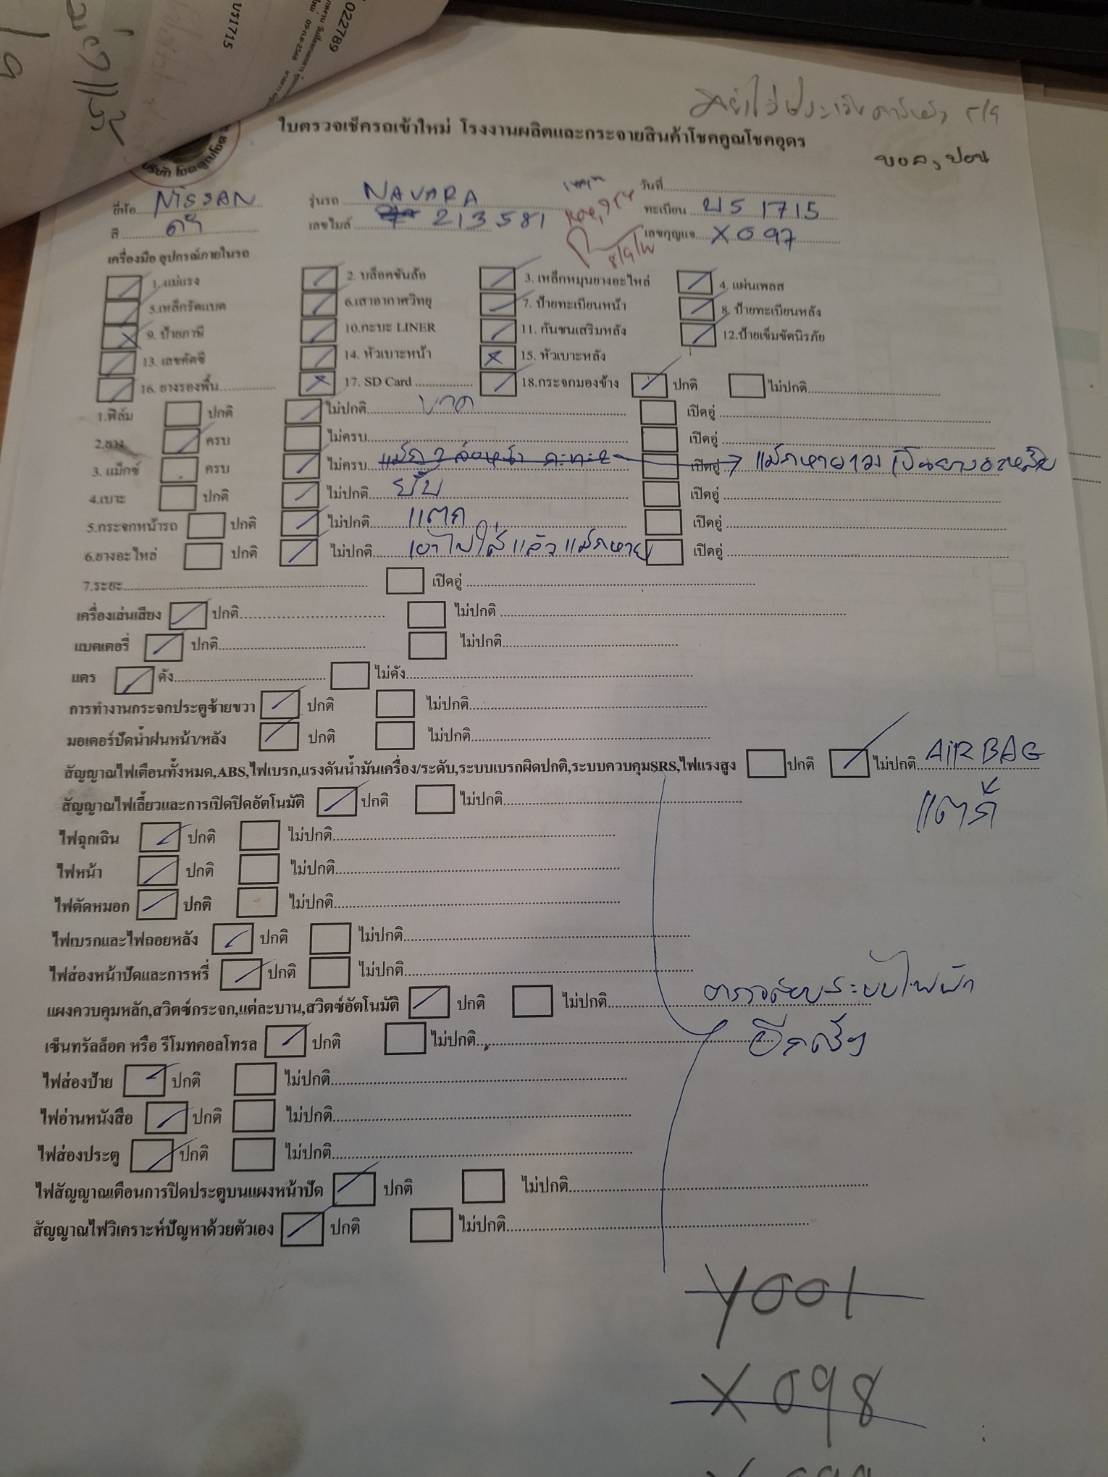 022789
บร1715
ใบตรวจเช็ครถเข้าใหม่ โรงงานผลิตและกระจายสินค้าโชคคูณโชคอุดร
บอล, ปอน
ยี่ห้อ NISSAN รุ่นรถ NAVARA วันที่
สี ดำ เลขไมล์ 213581 ทะเบียน บร 1715
เลขกุญแจ X097
เครื่องมือ อุปกรณ์ภายในรถ
1.แม่แรง 2. บล็อคขันล้อ 3. เหล็กหมุนยางอะไหล่ 4. แผ่นเพลส
5.เหล็กรัดแบต 6.เสาอากาศวิทยุ 7. ป้ายทะเบียนหน้า 8. ป้ายทะเบียนหลัง
9. ป้ายภาษี 10.กะบะ LINER 11. กันชนเสริมหลัง 12.ป้ายเข็มขัดนิรภัย
13. เลขคัตซี 14. หัวเบาะหน้า 15. หัวเบาะหลัง
16. ยางรองพื้น 17. SD Card 18.กระจกมองข้าง ปกติ ไม่ปกติ
1.ฟิล์ม ปกติ ไม่ปกติ ขาด เปิดอู่
2.ยาง ครบ ไม่ครบ เปิดอู่
3. แม็กซ์ ครบ ไม่ครบ เปิดอู่ แม็กหาย 1 วง เป็นยางอะหลั่ย
4.เบาะ ปกติ ไม่ปกติ ยับ เปิดอู่
5.กระจกหน้ารถ ปกติ ไม่ปกติ แตก เปิดอู่
6.ยางอะไหล่ ปกติ ไม่ปกติ เอาไปใส่แล้วแม็กหาย เปิดอู่
7.ระยะ เปิดอู่
เครื่องเล่นเสียง ปกติ ไม่ปกติ
แบตเตอรี่ ปกติ ไม่ปกติ
แตร ดัง ไม่ดัง
การทำงานกระจกประตูซ้ายขวา ปกติ ไม่ปกติ
มอเตอร์ปัดน้ำฝนหน้า/หลัง ปกติ ไม่ปกติ
สัญญาณไฟเตือนทั้งหมด,ABS,ไฟเบรก,แรงดันน้ำมันเครื่อง/ระดับ,ระบบเบรกผิดปกติ,ระบบควบคุมSRS,ไฟแรงสูง ปกติ ไม่ปกติ AIRBAG
สัญญาณไฟเลี้ยวและการเปิดปิดอัตโนมัติ ปกติ ไม่ปกติ
ไฟฉุกเฉิน ปกติ ไม่ปกติ
ไฟหน้า ปกติ ไม่ปกติ
ไฟตัดหมอก ปกติ ไม่ปกติ
ไฟเบรกและไฟถอยหลัง ปกติ ไม่ปกติ
ไฟส่องหน้าปัดและการหรี่ ปกติ ไม่ปกติ
แผงควบคุมหลัก,สวิตซ์กระจก,แต่ละบาน,สวิตซ์อัตโนมัติ ปกติ ไม่ปกติ
เซ็นทรัลล็อค หรือ รีโมทคอลโทรล ปกติ ไม่ปกติ
อีกครั้ง
ไฟส่องป้าย ปกติ ไม่ปกติ
ไฟอ่านหนังสือ ปกติ ไม่ปกติ
ไฟส่องประตู ปกติ ไม่ปกติ
ไฟสัญญาณเตือนการปิดประตูบนแผงหน้าปัด ปกติ ไม่ปกติ
สัญญาณไฟวิเคราะห์ปัญหาด้วยตัวเอง ปกติ ไม่ปกติ
Y001
X098